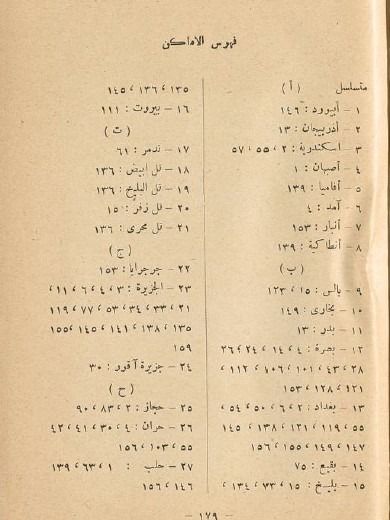 فهرس الاماكن
متسلسل ( أ )
١ — أبيورد : ١٤٦
٢ — أذربيجان : ١٣
٣ — اسكندرية : ٢ ، ٥٥ ، ٥٧
٤ — أصبهان : ١
٥ — أفاميا : ١٣٩
٦ — آمد : ٤
٧ — أنبار : ١٥٣
٨ — أنطاكية : ١٣٩
( ب )
٩ — بالس : ١٥ ، ١٢٣
١٠ — بخارى : ١٤٩
١١ — بدر : ١٣
١٢ — بصرة : ٤ ، ١٤ ، ٢٤ ، ٢٦
٢٨ ، ٤٣ ، ١٠١ ، ١٠٦ ، ١١٢ ،
١٢١ ، ١٢٨ ، ١٥٣
١٣ — بغداد : ٢ ، ٦ ، ٥٠ ، ٥٤ ،
٥٥ ، ١١٩ ، ١٢١ ، ١٣٨ ، ١٤٥
١٤٧ ، ١٤٩ ، ١٥٥ ، ١٥٦
١٤ — بقيع : ٧٥
١٥ — بليخ : ١٥ ، ٣٣ ، ١٣٤ ،
١٣٥ ، ١٣٦ ، ١٤٥
١٦ — بيروت : ١١١
( ت )
١٧ — تدمر : ٦١
١٨ — تل ابيض : ١٣٦
١٩ — تل البليخ : ١٣٦
٢٠ — تل زفر : ١٥
٢١ — تل محرى : ١٣٦
( ج )
٢٢ — جرجرايا : ١٥٣
٢٣ — الجزيرة : ٣ ، ٤ ، ٦ ، ١١ ،
٢١ ، ٣٣ ، ٣٤ ، ٥٣ ، ٧٧ ، ١١٩
١٣٥ ، ١٣٨ ، ١٤١ ، ١٤٥ ، ١٥٥
١٥٩
٢٤ — جزيرة آقور : ٣٠
( ح )
٢٥ — حجاز : ٢ ، ٨٣ ، ٩٠
٢٦ — حران : ٤ ، ٣٠ ، ٤١ ، ٤٢
٥٥ ، ١٠٣ ، ١٥٦
٢٧ — حلب : ١ ، ٦٣ ، ١٣٩
١٤٦ ، ١٥٦
— ١٧٩ —